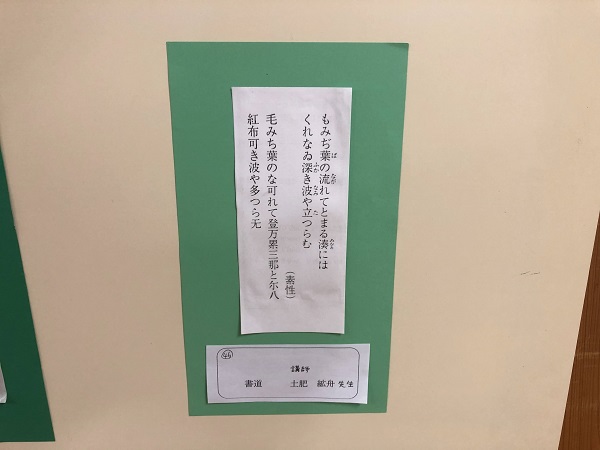 もみぢ葉の流れてとまる湊には
くれなゐ深き波や立つらむ
(素性)
毛みち葉のな可れて登万累三那と尓八
紅布可き波や多つら无
46
講師
書道 土肥 鉱舟 先生